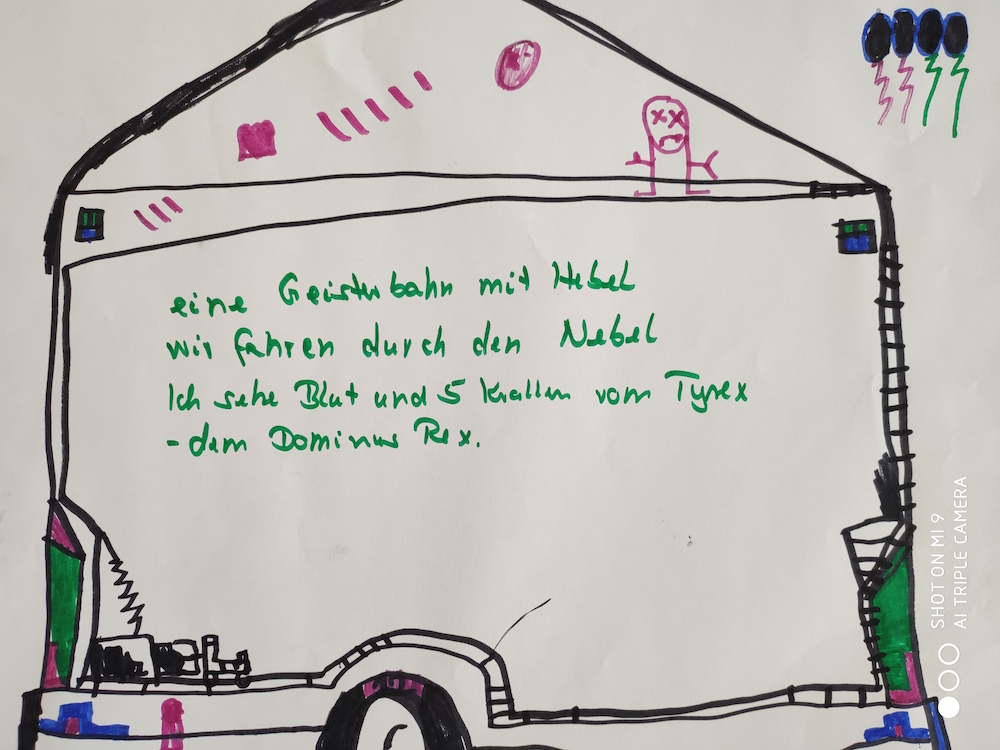 eine Geisterbahn mit Hebel
wir fahren durch den Nebel
Ich sehe Blut und 5 Krallen vom Tyrex
- dem Dominus Rex.
SHOT ON MI 9
AI TRIPLE CAMERA